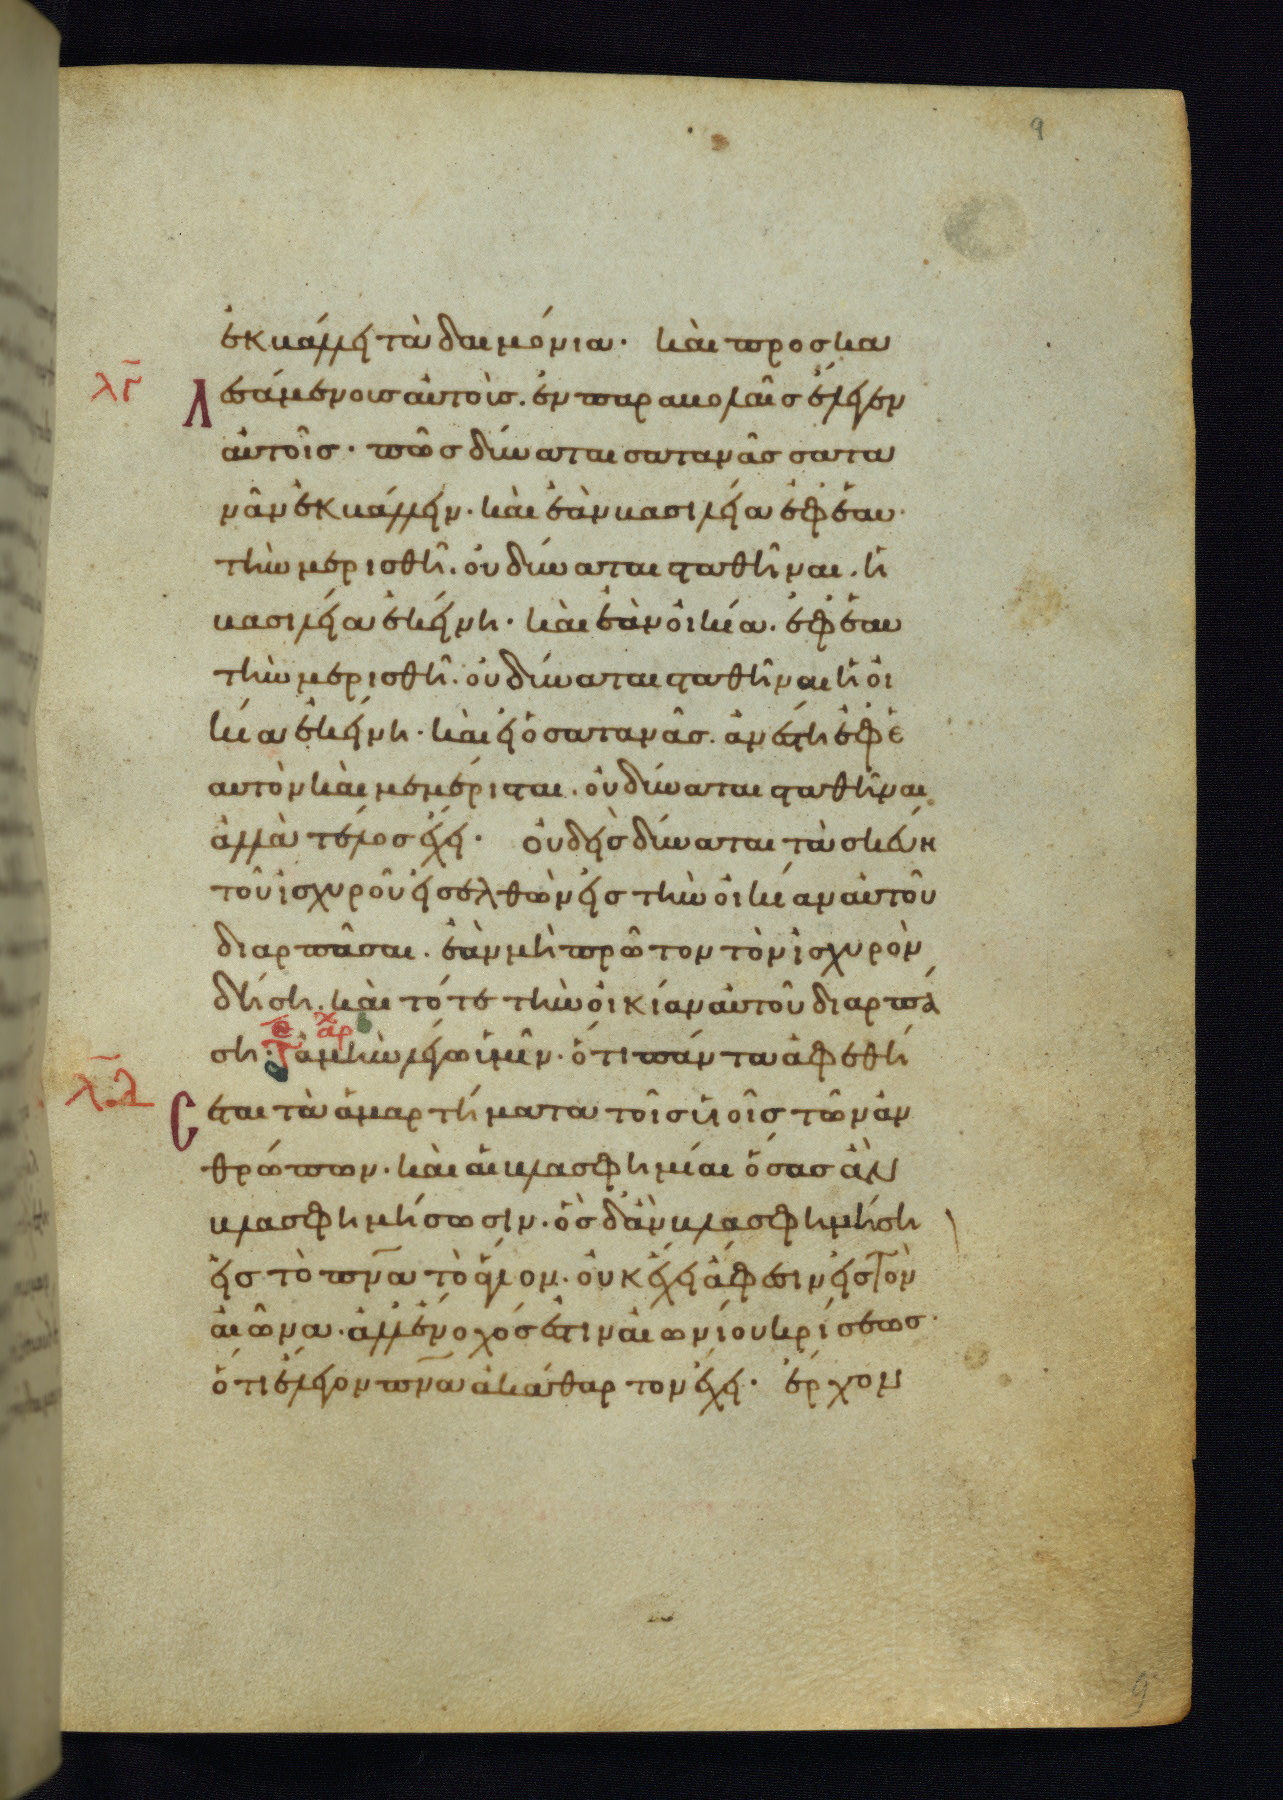 9
ἐκβάλλει τὰ δαιμόνια· καὶ προσκα
λγ̄ Λ εσάμενοις αὐτοὶς. ἐν παραβολαῖς ἔλεγεν
αὐτοῖς· πῶς δύναται σατανᾶς σατα
νᾶν ἐκβάλλειν· καὶ ἐὰν βασιλεία ἐφ ἑαυ
τὴν μερισθῆ. οὐ δύναται σταθῆναι. ἡ
βασιλεία ἐκείνη· καὶ ἐὰν οἰκία. ἐφ ἑαυ
τὴν μερισθῆ. οὐ δύναται σταθῆναι ἡ οἰ
κία ἐκείνη· καὶ εἰ ὁ σατανᾶς. ἀνέστη ἐφ ἑ
αυτὸν καὶ μεμέρισται. οὐ δύναται σταθῆναι
ἀλλὰ τέλος ἔχει· οὐδεὶς δύναται τὰ σκεύη
τοῦ ἰσχυροῦ εἰσελθὼν εἰς τὴν οἰκίαν αὐτοῦ
διαρπᾶσαι. ἐὰν μὴ πρῶτον τὸν ἰσχυρὸν
δήση. καὶ τότε τὴν οἰκίαν αὐτοῦ διαρπά
ση· ἀρχ ἀμὴν λέγω ὑμῖν· ὅτι πάντα ἀφεθή
λδ̄ C σεται τὰ ἁμαρτήματα τοῖς υἱοῖς τῶν ἀν
θρώπων· καὶ αἱ βλασφημίαι ὅσας ἂν
βλασφημήσωσιν· ὃς δ' ἂν βλασφημήση
εἰς τὸ πνα τὸ ἅγιον· οὐκ ἔχει ἄφεσιν εἰς τὸν
αἰῶνα· ἀλλ' ἔνοχός ἐστιν αἰωνίου κρίσεως·
ὅτι ἔλεγον πνα ἀκάθαρτον ἔχει· ἔρχον
9